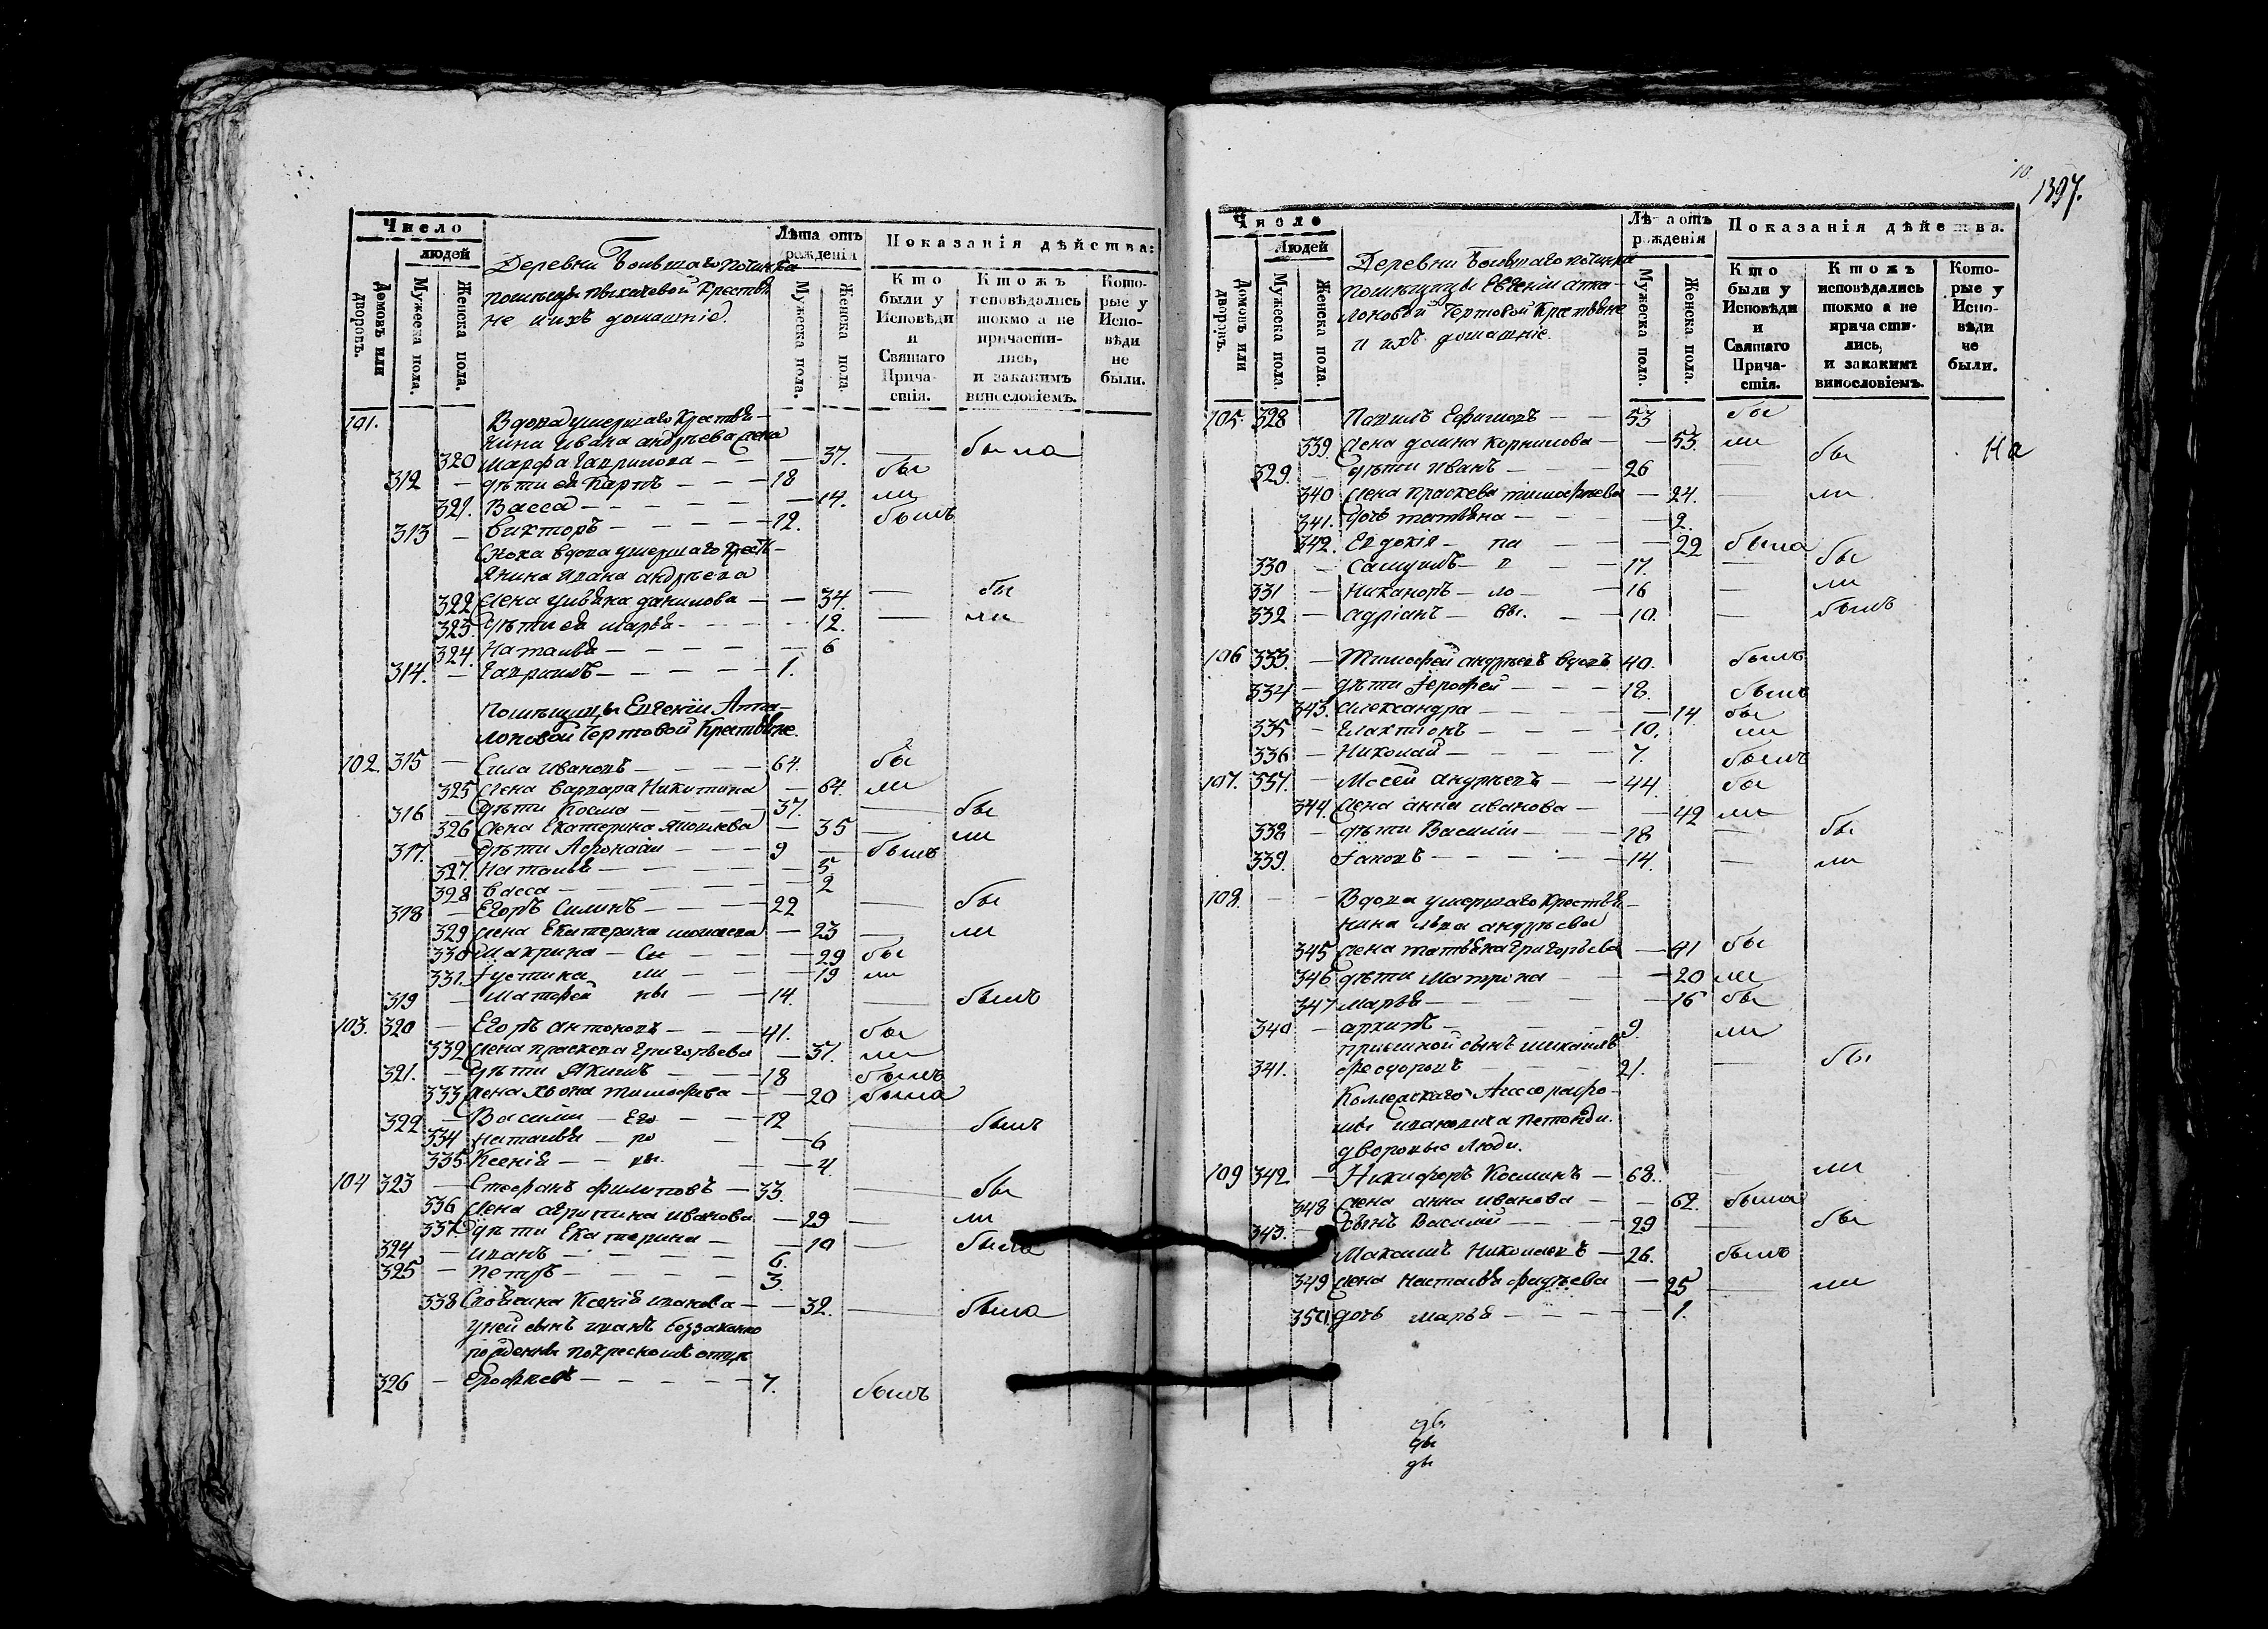 Число
людей
Домовъ или дворовъ.
Мужеска пола.
Женска пола.
Деревни Большаго починка
помѣщицы Пыхачевой Крестья
не и ихъ домашніе.
Лѣта отъ рожденія
Мужеска пола.
Женска пола.
Показанія дѣйства:
Кто были у Исповѣди и Святаго Причастія.
Ктожъ исповѣдались токмо а не причастились, и закакимъ винословіемъ.
Которые у Исповѣди не были.
101. Вдова умершаго Крестья-
нина Ивана андрѣева жена
320 Марфа Гаврилова — — — 37. — была
312 — дѣти ея Карпъ — — — 18 бы
321. Васса — — — — — 14. ли
313 — Викторъ — — — — 12. былъ
Сноха вдова умершаго Кресть-
янина Ивана андрѣева
322 жена Ульяна данилова — — 34. — бы
323. дѣти ея марья — — — 12. — ли
324. Наталья — — — — — 6
314. — Гавриилъ — — — — 1.
помѣщицы Евгеніи Апта-
лоновой Чертовой Крестьяне.
102. 315 — Сила Ивановъ — — — — 64. бы
325 жена варвара Никитина — 64. ли
316 — дѣти Косма — — — — 37. — бы
326 жена Екатерина Яковлева — 35 — ли
317. — дѣти Афонасій — — — 9 — былъ
327. Наталья — — — — — 5.
328 васса — — — — — 2
318 — Егоръ Силинъ — — — 22 — бы
329 жена Екатерина — 23 — ли
330 Макрина — Си — — — 29 бы
331. Іустина ли — — — 19 ли
319 — Матфей ны — — 14. — былъ
103. 320 — Егоръ антоновъ — — — 41. бы
332 жена праскева Григорьева — 37. ли
321. — дѣти Якимъ — — — 18 былъ
333 жена тимофеева — — 20 была
322 — Василій — Его — — 12 — былъ
334 Наталья — ро — — 6
335. Ксенія — — вы. — — 4.
104 323 — Стефанъ филиповъ — 33. — бы
336 жена агрипина иванова — 29 — ли
337. дѣти Екатерина — — 10 — была
324 — иванъ — — — — 6.
325 — петръ — — — — 3.
338 Своячина Ксенія иванова — — 32. — была
у ней сынъ иванъ беззаконно
рожденны
326 — Ерофѣевъ — — — — — 7. былъ
10.
1397.
Число
Людей
Домовъ или дворовъ.
Мужеска пола.
Женска пола.
Деревни Большаго починка
помѣщицы Евгеніи Апта-
лоновой Чертовой Крестьяне
и ихъ домашніе.
Лѣта отъ рожденія
Мужеска пола.
Женска пола.
Показанія дѣйства.
Кто были у Исповѣди и Святаго Причастія.
Ктожъ исповѣдались токмо а не причастились, и закакимъ винословіемъ.
Которые у Исповѣди не были.
105. 328 Павилъ Ефимовъ — — 53 бы
339. жена домна корнилова — — 53. ли
329. — дѣти иванъ — — — 26 — бы На
340 жена праскева тимофѣева — 24. — ли
341. дочь татьяна — — — 2.
342. Евдокія — па — — — 22 была
330 — Самуилъ — в — — 17. — бы
331 — Никаноръ — ло — — 16 — ли
332 — адріанъ — вы. — 10. — былъ
106 333. — Тимофей андрѣевъ вдовъ 40. былъ
334 — дѣти Іерофей — — — 18. былъ
343. Александра — — — — 14 бы
335 — Галактіонъ — — — 10. ли
336 — Николай — — — — 7. былъ
107. 337. — Мосей андрѣевъ — — 44. бы
344. жена анна иванова — — 42 ли
338 — дѣти Василій — — — 18 — бы
339. Іаковъ — — — — — 14. — ли
108. — — Вдова умершаго Крестья-
нина андрѣева
345 жена татьяна григорьева — 41 бы
346 дѣти Матрена — — 20 ли
347 марья — — — — 16 бы
340 — архипъ — — — 9. ли
пріемной сынъ михаилъ
341. феодоровъ — — — 21. — бы
Коллежскаго Ассесора
ивановича
дворовые люди.
109 342 — Никифоръ Косминъ — 68. — ли
348 жена анна иванова — — 62. была
343. — сынъ Василій — — — 29 — бы
Максимъ Николаевъ — 26. былъ
349 жена настасья фадѣева — 25 — ли
350. дочь марья — — — — 1.